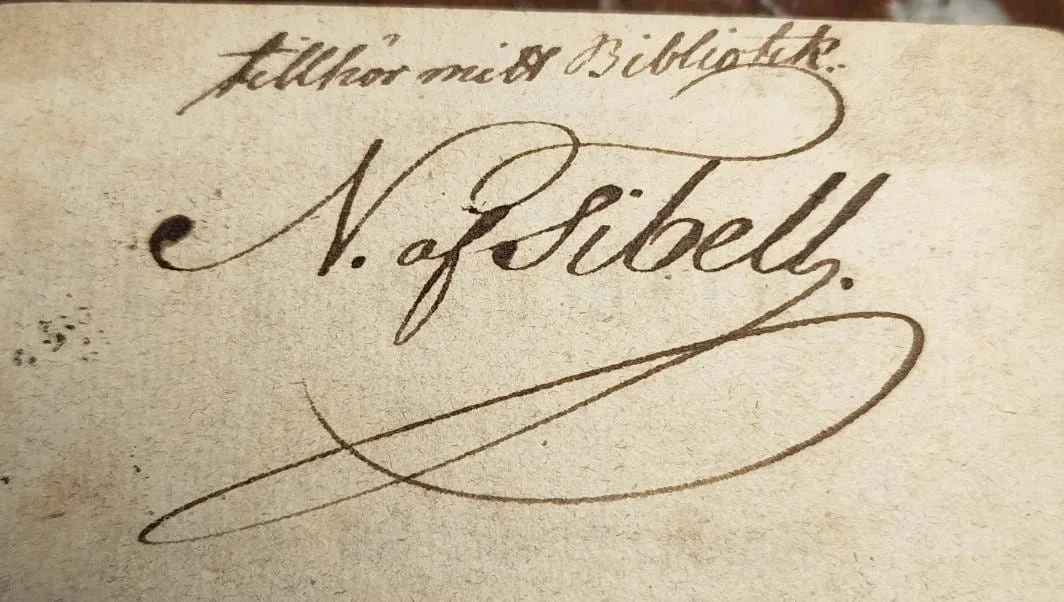 tillhör mitt Bibliotek.
N. af Sibell.